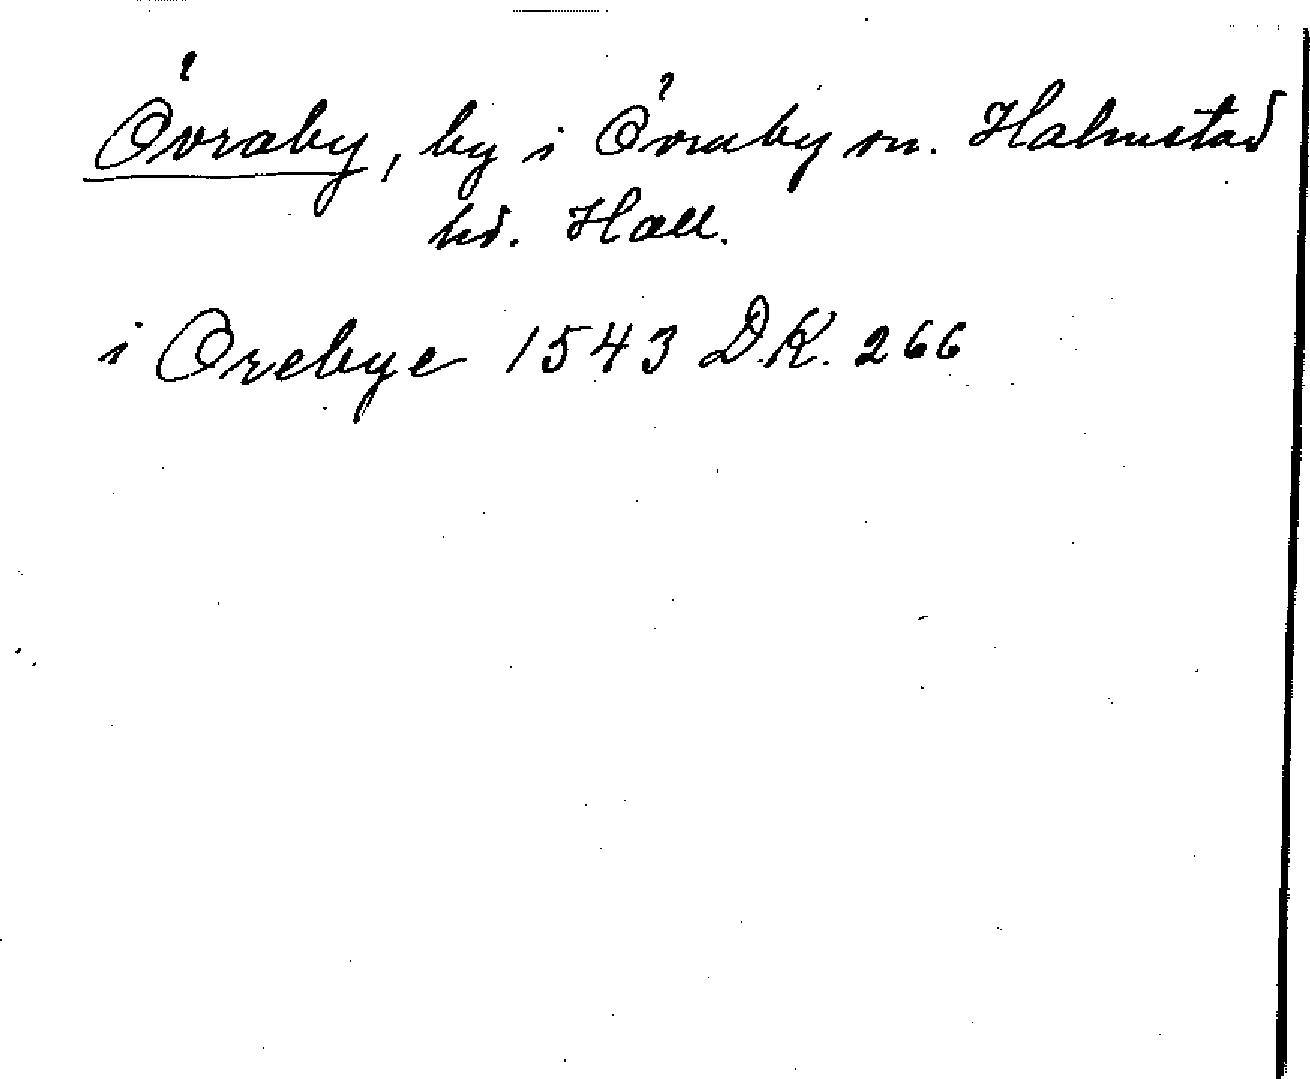 Övraby, by i Övraby sn. Halmstad
hd. Hall.
i Orebye 1543 D.K. 266